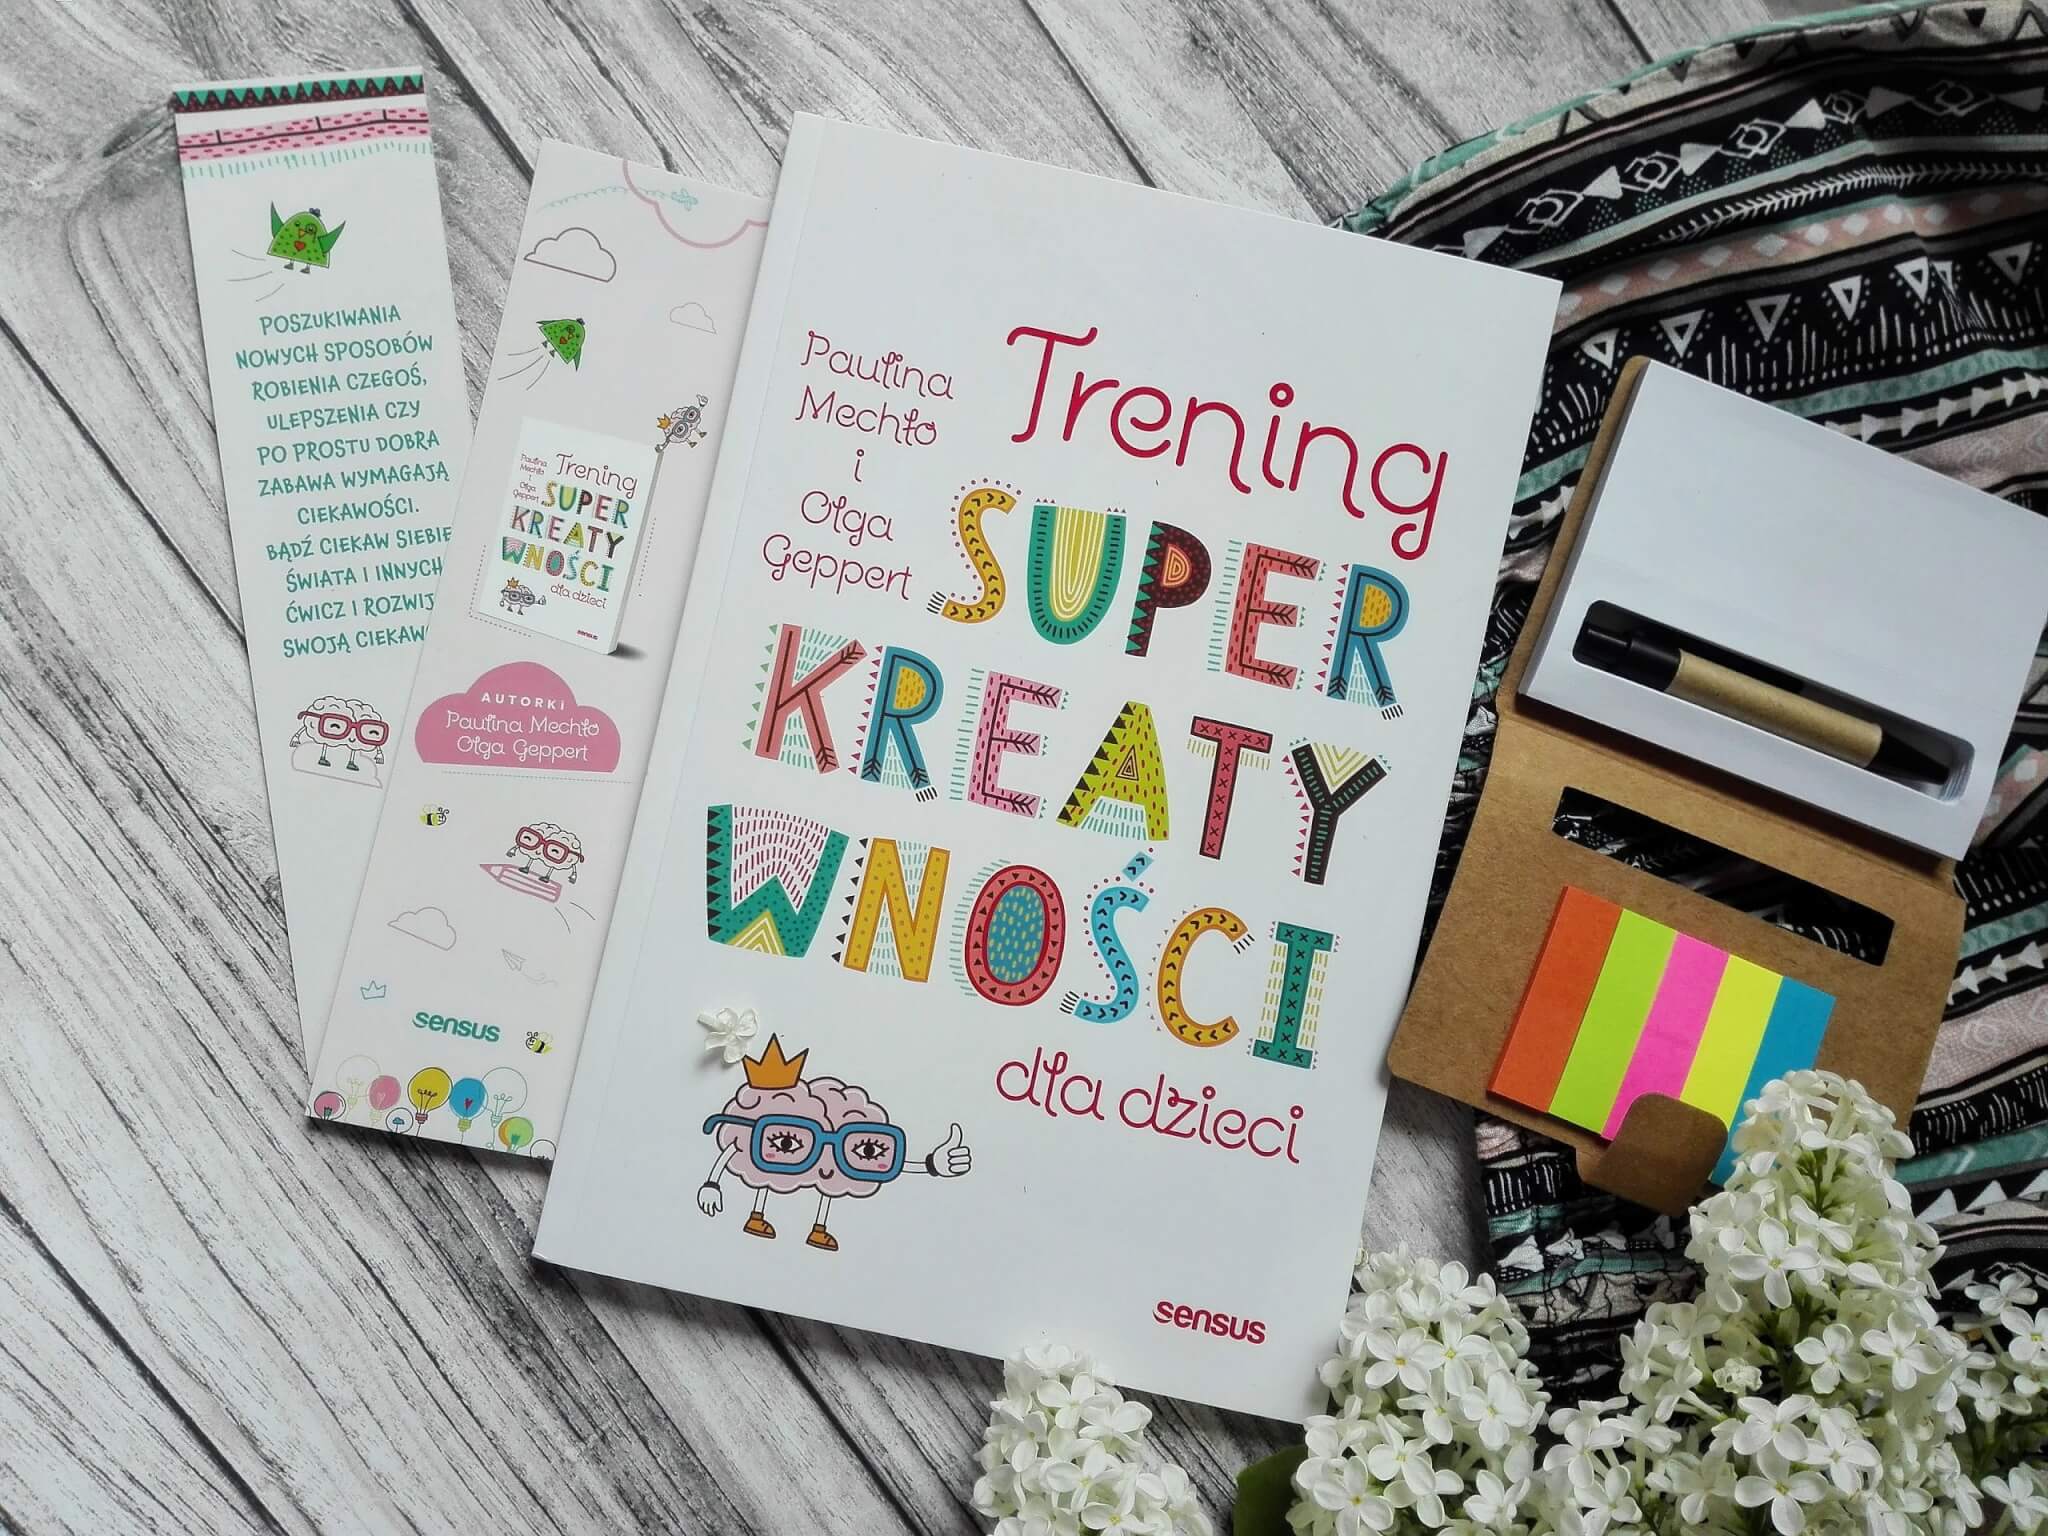 POSZUKIWANIA
NOWYCH SPOSOBÓW
ROBIENIA CZEGOŚ,
ULEPSZENIA CZY
PO PROSTU DOBRA
ZABAWA WYMAGAJĄ
CIEKAWOŚCI.
BĄDŹ CIEKAW SIEBIE
ŚWIATA I INNYCH
ĆWICZ I ROZWIJ
SWOJĄ CIEKAW
Paulina
Mechło
i
Olga
Geppert
Trening
SUPER
KREATY
WNOŚCI
dla dzieci
sensus
AUTORKI
Paulina Mechło
Olga Geppert
sensus
Paulina
Mechło
i
Olga
Geppert
Trening
SUPER
KREATY
WNOŚCI
dla dzieci
sensus